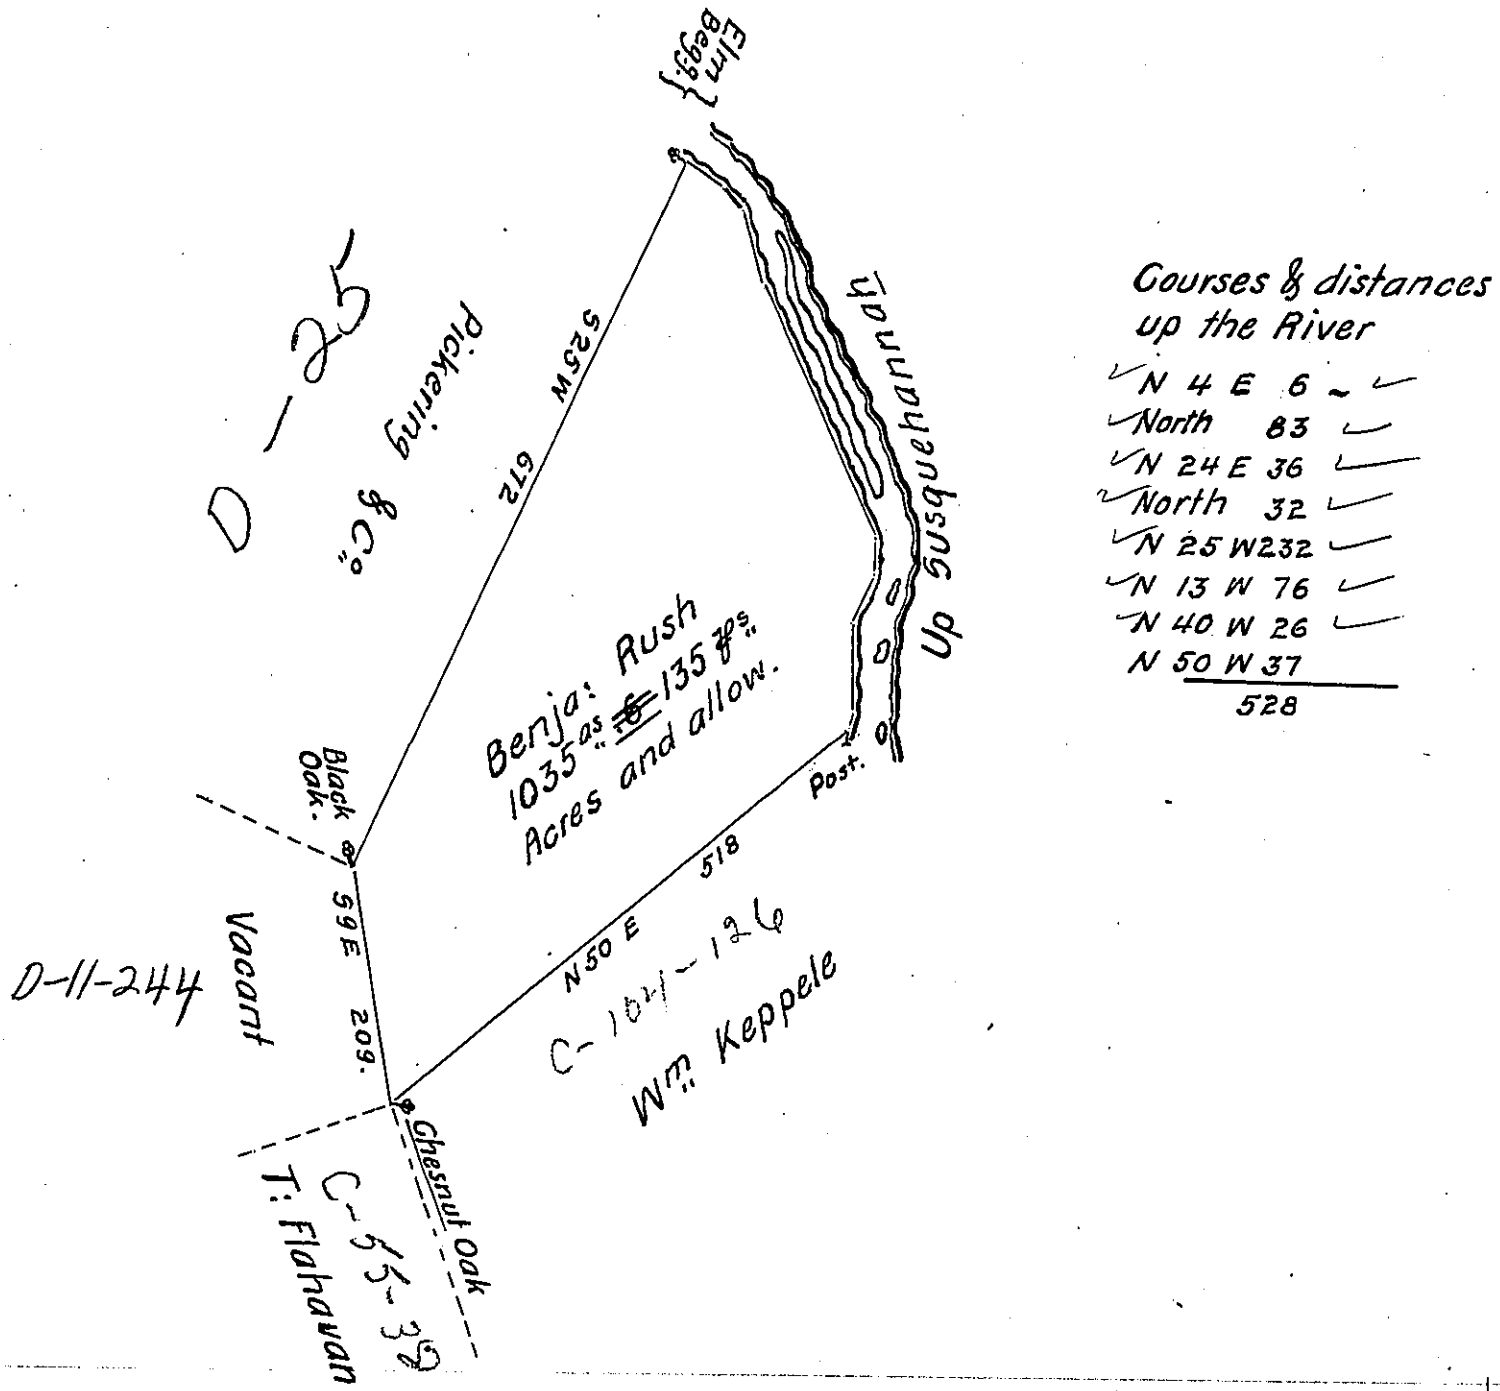 Elm }
Begg. }
D-25
Pickering
& Co.
S25W
672
Up Susquehannah
Courses & distances
up the River
N 4 E 6
North 83
N 24 E 36
North 32
N 25 W 232
N 13 W 76
N 40 W 26
N 50 W 37
528
Benja: Rush
1035 as 135 ps.
Acres and allow.
Post.
Black
Oak.
S9E 209.
Vacant
D-11-244
N 50 E 518
Wm. Keppele
Chesnut Oak
T: Flahavan